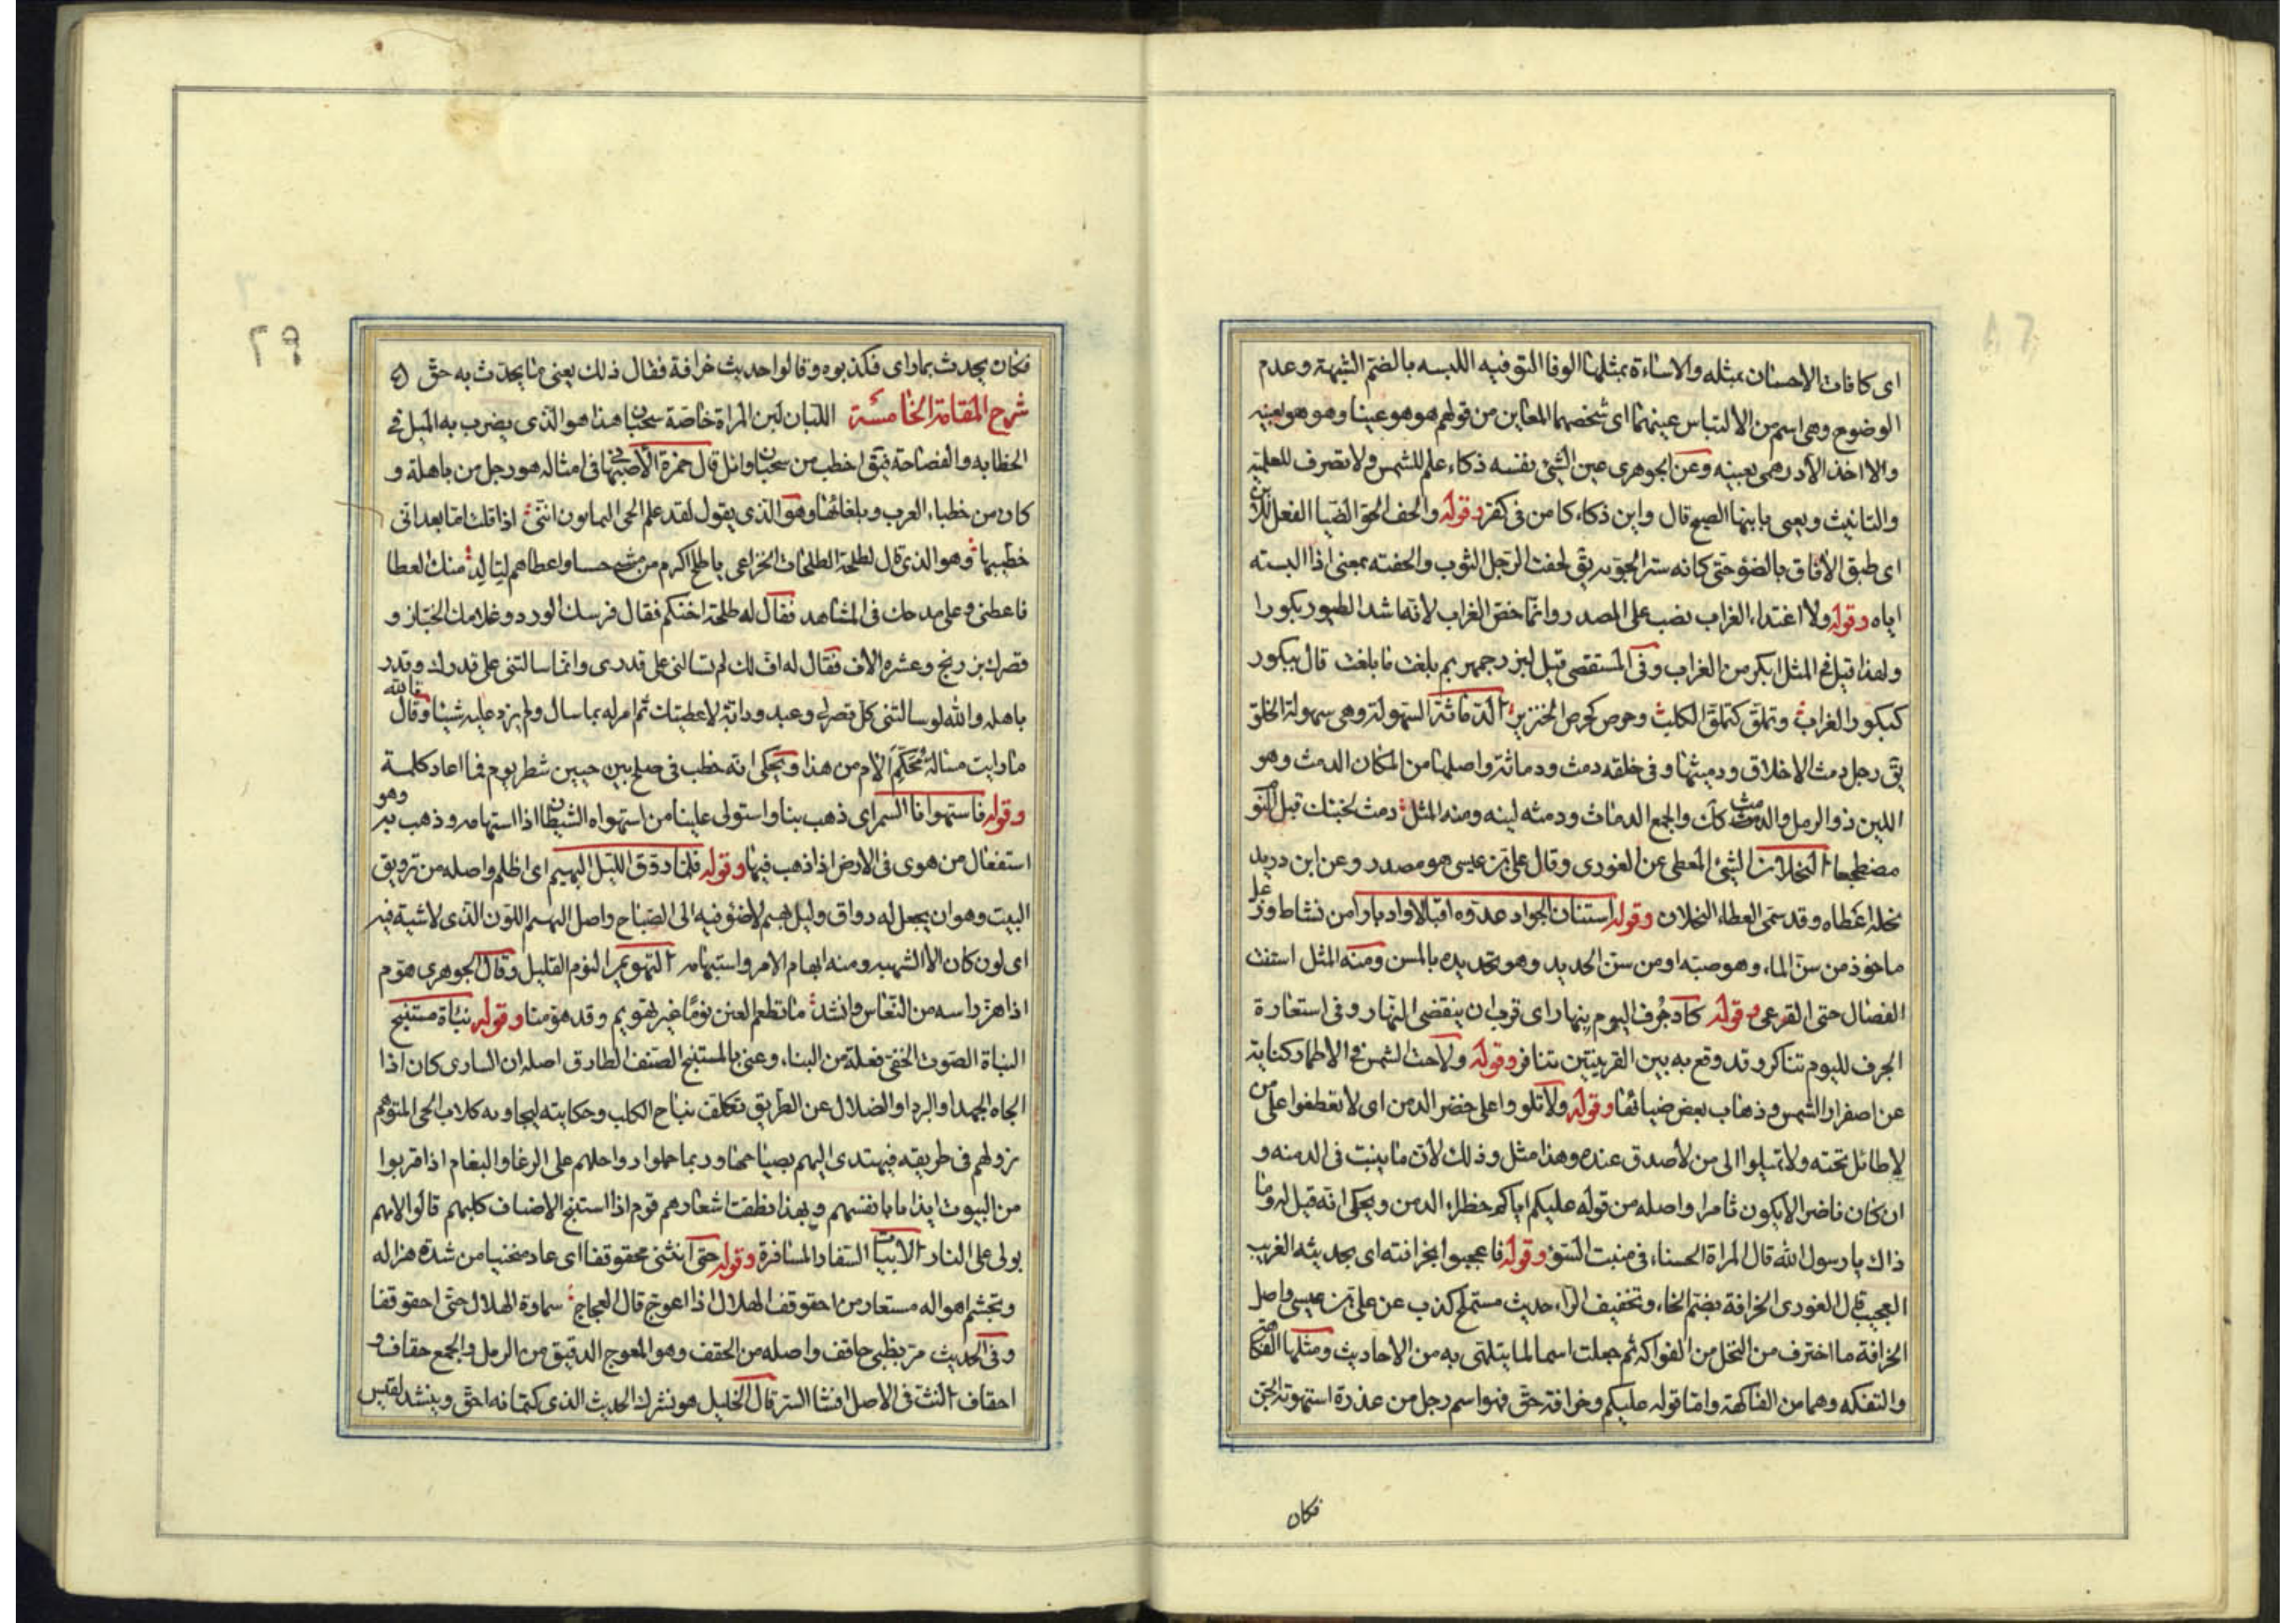 اى كافات الاحسان بمثله والاساءة بمثلها الوفا التوفيه اللبسه بالضم الشبهة وعدم
الوضوح وهى اسم من الالتباس عينهما اى شخصهما المعاين من قولهم هو هو عينا وهو هو بعينه
والا اخذ الا درهمى بعينه وعن الجوهرى عين الشئ نفسه ذكاء علم للشمس ولا تصرف للعلمية
والتانيث ويعنى بابنها الصبح قال وابن ذكاء كامن فى كفر وقوله والحف الجو الضيا الفعل
اى طبق الافاق بالضوء حتى كانه ستر الجو به يق لحفت الرجل الثوب والحفته بمعنى اذا البسته
اياه وقوله ولا اغتداء الغراب نصب على المصدر وانما خص الغراب لانه اشد الطيور بكورا
ولهذا قيل فى المثل ابكر من الغراب وفى المستقصى قيل لبزرجمهر بم بلغت ما بلغت قال ببكور
كبكور الغراب وتملق كتملق الكلب وحرص كحرص الخنزير الدماثة السهولة وهى سهولة الخلق
يق رجل دمث الاخلاق ودميثها وفى خلقه دمث ودماثة واصلها من المكان الدمث وهو
اللين ذو الرمل والدمث كك والجمع الدماث ودمثه لينه ومنه المثل دمث لجنبك قبل النو
مضطجعا النحلان الشئ المعطى عن الغورى وقال على بن عيسى هو مصدر وعن ابن دريد
نحله اعطاه وقد سمى العطاء النحلان وقوله استنان الجواد عدوه اقبالا وادبارا من نشاط
ماخوذ من سن الماء وهو صبه او من سن الحديد وهو تحديده بالمسن ومنه المثل استنت
الفصال حتى القرعى وقوله كاد جرف اليوم ينهار اى قرب ان ينقضى النهار وفى استعارة
الجرف لليوم تناكر وقد وقع به بين القرينتين تنافر وقوله ولاحت الشمس فى الاطمار كناية
عن اصفرار الشمس وذهاب بعض ضيائها وقوله ولا تلووا على خضر الدمن اى لا تعطفوا على من
لا طائل تحته ولا تميلوا الى من لا صدق عنده وهذا مثل وذلك لان ما ينبت فى الدمنه و
ان كان ناضرا لا يكون ثامرا واصله من قوله عليكم اياكم خضراء الدمن ويحكى انه قيل له وما
ذاك يا رسول الله قال المراة الحسناء فى منبت السوء وقوله فاعجبوا بخرافته اى بحديثه الغريب
العجيب قال الغورى الخرافة بضم الخاء وتخفيف الراء حديث مستملح كذب عن على بن عيسى واصل
الخرافة ما اخترف من النخل من الفواكه ثم جعلت اسما لما يتلهى به من الاحاديث ومثلها الفكاهة
والتفكه وهما من الفاكهة واما قوله عليكم وخرافة حق فهو اسم رجل من عذرة استهوته الجن
فكان
٢٩
فكان يحدث بما راى فكذبوه وقالوا حديث خرافة فقال ذلك يعنى ما يحدث به حق
شرح المقامة الخامسة اللبان لبن المراة خاصة سحبان هذا هو الذى يضرب به المثل فى
الخطابه والفصاحة فيق اخطب من سحبان وائل قال حمزة الاصبهانى فى امثاله هو رجل من باهلة و
كان من خطباء العرب وبلغائها وهو الذى يقول لقد علم الحى اليمانون اننى اذا قلت اما بعد انى
خطيبها وهو الذى قال لطلحة الطلحات الخزاعى يا طلح اكرم من مشى حسبا واعطاهم لتالد منك العطا
فاعطنى وعلى مدحك فى المشاهد فقال له طلحة احتكم فقال فرسك الورد وغلامك الخباز و
قصرك بزرنج وعشره الاف فقال له اف لك لم تسالنى على قدرى وانما سالتنى على قدرك وقدر
باهله والله لو سالتنى كل قصر لى وعبد ودابة لاعطيتك ثم امر له بما سال ولم يزد عليه شيئا وقال تالله
ما رايت مسالة محكم الام من هذا ويحكى انه خطب فى صلح بين حيين شطر يوم فما اعاد كلمة
وقوله فاستهوانا السمر اى ذهب بنا واستولى علينا من استهواه الشيطان اذا استهامه وذهب به وهو
استفعال من هوى فى الارض اذا ذهب فيها وقوله فلما روق الليل البهيم اى اظلم واصله من ترويق
البيت وهو ان يجعل له رواق وليل بهيم لا ضوء فيه الى الصباح واصل البهيم اللون الذى لا شية فيه
اى لون كان الا الشهبه ومنه ابهام الامر واستبهامه التهويم النوم القليل وقال الجوهرى هوم
اذا هز راسه من النعاس وانشد ما تطعم العين نوما غير تهويم وقد هومنا وقوله نباة مستنبح
النباة الصوت الخفى فعلة من النباء وعنى بالمستنبح الضيف الطارق اصله ان السارى كان اذا
الجاه الجهد او البرد او الضلال عن الطريق تكلف نباح الكلب وحكايته ليجاوبه كلاب الحى المتوهم
نزولهم فى طريقه فيهتدى اليهم بصياحها وربما حملوا رواحلهم على الرغا والبغام اذا قربوا
من البيوت ايذاما بانفسهم وبهذا نطقت اشعارهم قوم اذا استنبح الاضياف كلبهم قالوا لامهم
بولى على النار الابيات السفار المسافرة وقوله حتى انثنى محقوقفا اى عاد منحنيا من شدة هزاله
وتجشم اهواله مستعار من احقوقف الهلال اذا اعوج قال العجاج سماوة الهلال حتى احقوقفا
وفى الحديث مر بظبى حاقف واصله من الحقف وهو المعوج الدقيق من الرمل والجمع حقاف و
احقاف النث فى الاصل افشا السر قال الخليل هو نشرك الحديث الذى كتمانه احق وينشد لقيس